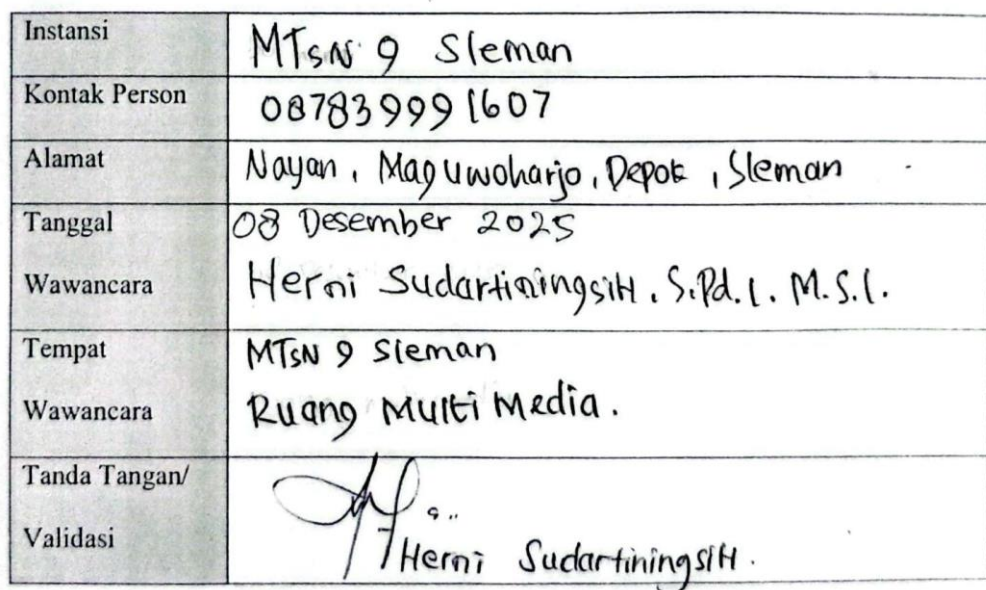 Instansi MTsN 9 Sleman
Kontak Person 087839991607
Alamat Nayan, Maguwoharjo, Depok, Sleman
Tanggal 08 Desember 2025
Wawancara Herni SudartiningsiH, S.Pd.I. M.S.I.
Tempat MTsN 9 Sleman
Wawancara Ruang Multi Media.
Tanda Tangan/
Validasi Herni SudartiningsiH.